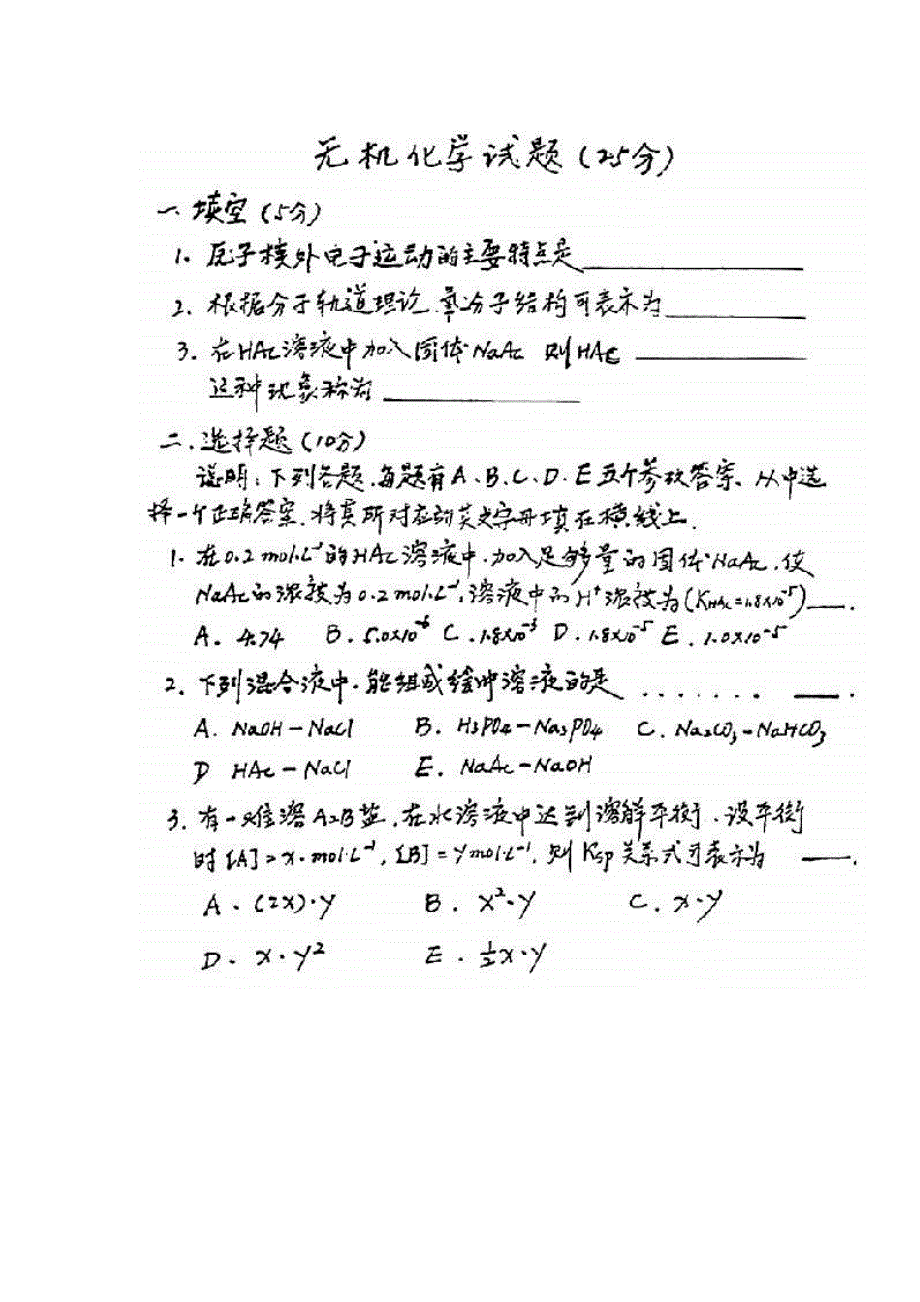 无机化学试题(25分)
一.填空(5分)
1. 原子核外电子运动的主要特点是
2. 根据分子轨道理论.氧分子结构可表示为
3. 在HAc溶液中加入固体NaAc 则HAc
这种现象称为
二.选择题(10分)
说明:下列各题.每题有A、B、C、D、E五个参考答案、从中选
择一个正确答案.将其所对应的英文字母填在横线上.
1. 在0.2mol·L⁻¹的HAc溶液中.加入足够量的固体NaAc.使
NaAc的浓度为0.2mol·L⁻¹,溶液中的H⁺浓度为(KHAc=1.8×10⁻⁵) .
A. 4.74 B. 5.0×10⁻⁶ C. 1.8×10⁻³ D. 1.8×10⁻⁵ E. 1.0×10⁻⁵
2. 下列混合液中.能组成缓冲溶液的是 ....... .
A. NaOH-NaCl B. H₃PO₄-Na₃PO₄ C. Na₂CO₃-NaHCO₃
D HAc-NaCl E. NaAc-NaOH
3. 有一难溶A₂B盐.在水溶液中达到溶解平衡.设平衡
时[A]=x·mol·L⁻¹,[B]=ymol·L⁻¹.则Ksp关系式可表示为 .
A. (2x)·y B. x²·y C. x·y
D. x·y² E. ½x·y